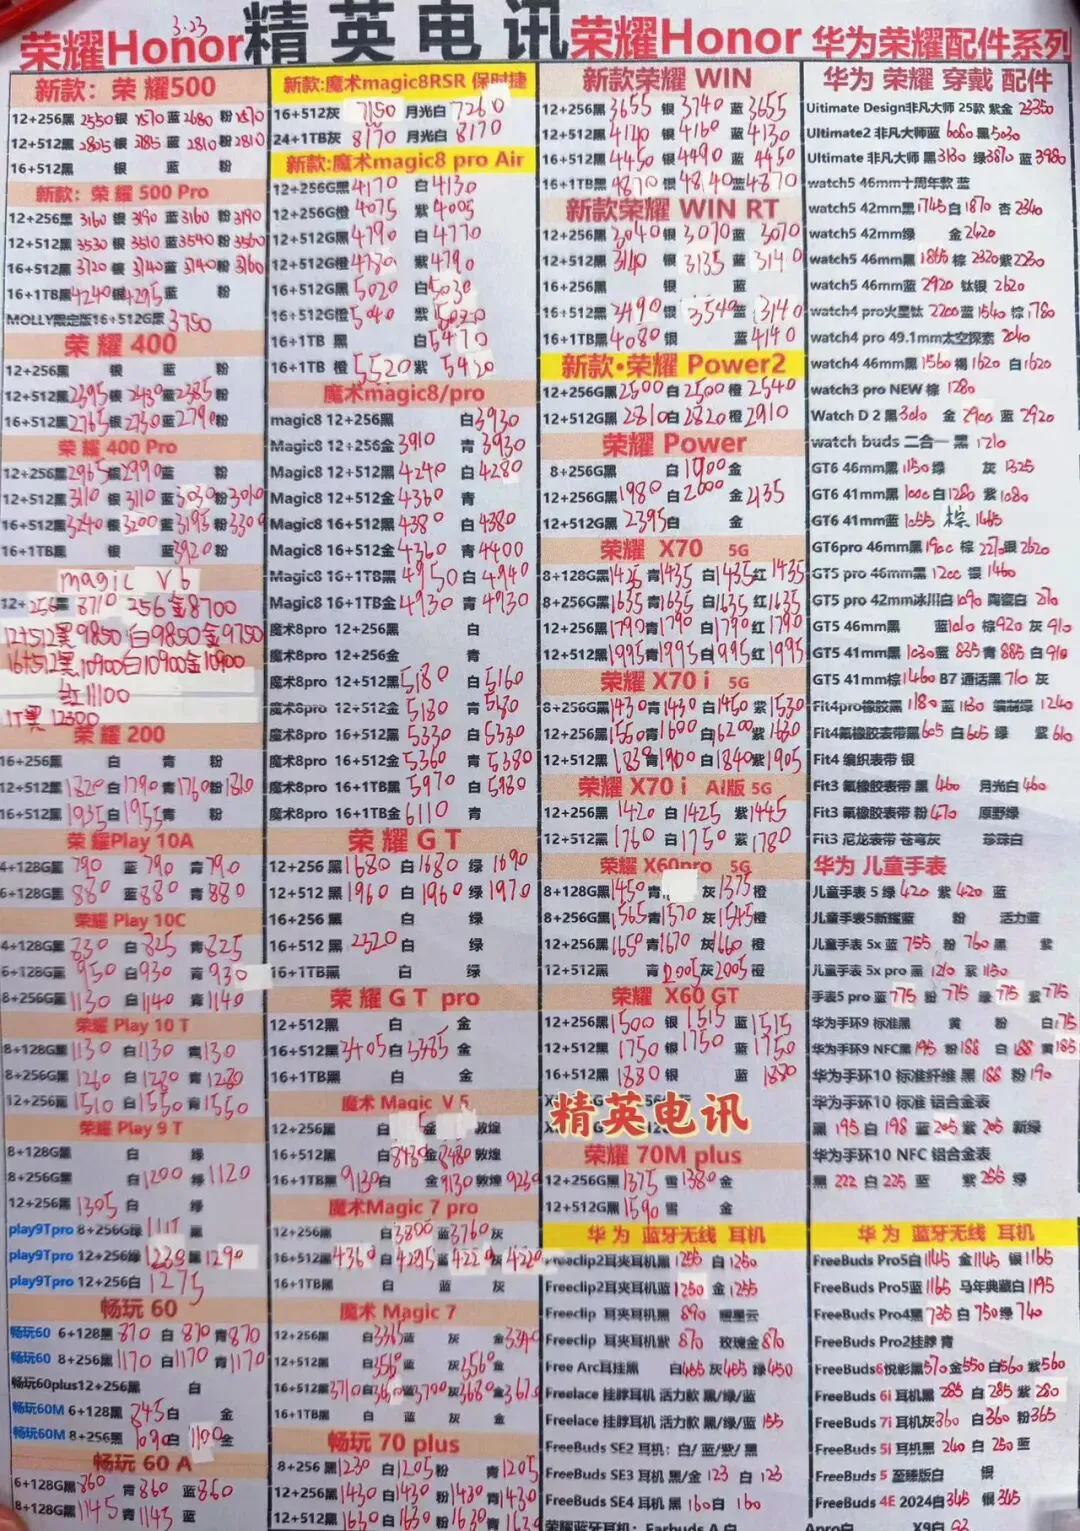 3.23
荣耀Honor 精英电讯 荣耀Honor 华为荣耀配件系列
新款：荣耀500
12+256黑 2550 银 蓝2680 粉
12+512黑 2805 银 2185 蓝 2810 粉 2810
16+512黑 银 蓝 粉
新款：荣耀 500 Pro
12+256黑 3160 银 3190 蓝 3160 粉 3190
12+512黑 3530 银 3510 蓝 3540 粉 3560
16+512黑 3720 银 3740 蓝 3740 粉 3760
16+1TB黑 4240 银 4295 蓝 粉
MOLLY限定版16+512G黑 3750
荣耀 400
12+256黑 银 蓝 粉
12+512黑 2395 银 2430 蓝 2385 粉
16+512黑 2765 银 2730 蓝 2790 粉
荣耀 400 Pro
12+256黑 2965 银 2990 蓝 粉
12+512黑 3110 银 3110 蓝 3030 粉 3010
16+512黑 3240 银 3200 蓝 3195 粉 3300
16+1TB黑 银 蓝 3920 粉
magic V6
12+256黑 8710 256金 8700
12+512黑 9850 白 9850 金 9750
16+512黑 10900 白 10900 金 10900
红 11100
1T黑 12300
荣耀 200
16+256黑 白 青 粉
12+512黑 1820 白 1790 青 1760 粉 1810
16+512黑 1935 白 1955 青 粉
荣耀Play 10A
4+128G黑 790 蓝 790 青 790
6+128G黑 880 蓝 880 青 880
荣耀 Play 10C
4+128G黑 830 白 825 青 825
6+128G黑 950 白 930 青 930
8+256G黑 1130 白 1140 青 1140
荣耀 Play 10 T
8+128G黑 1130 白 1130 青 1130
8+256G黑 1260 白 1280 青 1280
12+256黑 1510 白 1550 青 1550
荣耀 Play 9 T
8+128G黑 白 绿
8+256G黑 白 1200 绿 1120
12+256黑 1305 白 绿
play9Tpro 8+256G绿 黑
play9Tpro 12+256绿 1230 黑 1290
play9Tpro 12+256白 1275
畅玩 60
畅玩60 6+128黑 870 白 870 青 870
畅玩60 8+256黑 1170 白 1170 青 1170
畅玩60plus12+256黑 白
畅玩60M 6+128黑 845 白 金
畅玩60M 8+256黑 1090 白 1100 金
畅玩 60 A
6+128G黑 860 青 860 蓝 860
8+128G黑 1145 青 1145 蓝
新款:魔术magic8RSR 保时捷
16+512灰 7150 月光白 7260
24+1TB灰 8170 月光白 8170
新款:魔术magic8 pro Air
12+256G黑 4170 白 4130
12+256G橙 4075 紫 4005
12+512G黑 4790 白 4770
12+512G橙 4780 紫 4790
16+512G黑 5020 白 5030
16+512G橙 5040 紫 5020
16+1TB 黑 白 5470
16+1TB 橙 5520 紫 5420
魔术magic8/pro
magic8 12+256黑 白 3930
Magic8 12+256金 3910 青 3930
Magic8 12+512黑 4240 白 4280
Magic8 12+512金 4360 青
Magic8 16+512黑 4380 白 4380
Magic8 16+512金 4360 青 4400
Magic8 16+1TB黑 4950 白 4940
Magic8 16+1TB金 4930 青 4930
魔术8pro 12+256黑 白
魔术8pro 12+256金 青
魔术8pro 12+512黑 5180 白 5160
魔术8pro 12+512金 5180 青 5180
魔术8pro 16+512黑 5330 白 5330
魔术8pro 16+512金 5360 青 5380
魔术8pro 16+1TB黑 5970 白 5980
魔术8pro 16+1TB金 6110 青
荣耀 G T
12+256 黑 1680 白 1680 绿 1690
12+512 黑 1960 白 1960 绿 1970
16+256 黑 白 绿
16+512 黑 2320 白 绿
16+1TB黑 白 绿
荣耀G T pro
12+512黑 白 金
16+512黑 3405 白 3385 金
16+1TB黑 白 金
魔术 Magic V 5
12+256黑 白 金 敦煌
16+512黑 白 8430 金 8480 敦煌
16+1TB黑 9130 白 金 9130 敦煌 9230
魔术Magic 7 pro
12+256黑 白 3800 蓝 3760 灰
16+512黑 4360 白 4295 蓝 4220 灰 4220
16+1TB黑 白 蓝 灰
魔术 Magic 7
12+256黑 白 3365 蓝 灰 金 3340
12+512黑 白 3560 蓝 灰 3560 金
16+512黑 3710 白 蓝 3700 灰 3680 金
16+1TB黑 白 蓝 灰 金
畅玩 70 plus
8+256 黑 1230 白 1205 粉 青 1205
12+256黑 1430 白 1430 粉 1430 青 1430
12+512黑 1630 白 1630 粉 1630 青
新款荣耀 WIN
12+256黑 3655 银 3740 蓝 3655
12+512黑 4140 银 4160 蓝 4130
16+512黑 4450 银 4490 蓝 4450
16+1TB黑 4870 银 4840 蓝 4870
新款荣耀 WIN RT
12+256黑 3040 银 3070 蓝 3070
12+512黑 3140 银 3135 蓝 3140
16+256黑 银 蓝
16+512黑 3490 银 3540 蓝 3140
16+1TB黑 4080 银 蓝 4140
新款·荣耀 Power2
12+256G黑 2500 白 2500 橙 2540
12+512G黑 2810 白 2820 橙 2910
荣耀 Power
8+256G黑 白 1900 金
12+256G黑 1980 白 2000 金 2135
12+512G黑 2395 白 金
荣耀 X70 5G
8+128G黑 1435 青 1435 白 1435 红 1435
8+256G黑 1635 青 1635 白 1635 红 1635
12+256黑 1790 青 1790 白 1790 红 1790
12+512黑 1995 青 1995 白 1995 红 1995
荣耀 X70 i 5G
8+256G黑 1430 青 1430 白 1450 紫 1530
12+256黑 1550 青 1600 白 1620 紫 1630
12+512黑 1838 青 1900 白 1840 紫 1905
荣耀 X70 i AI版 5G
12+256黑 1420 白 1425 紫 1445
12+512黑 1760 白 1750 紫 1780
荣耀 X60pro 5G
8+128G黑 1450 青 灰 1375 橙
8+256G黑 1565 青 1570 灰 1545 橙
12+256黑 1650 青 1670 灰 1660 橙
12+512黑 青 2005 灰 2005 橙
荣耀 X60 GT
12+256黑 1500 银 1515 蓝 1515
12+512黑 1750 银 1750 蓝 1750
16+512黑 1880 银 蓝 1880
精英电讯
荣耀 70M plus
12+256G黑 1375 雪 1380 金
12+512G黑 1590 雪 金
华为 蓝牙无线 耳机
Freeclip2耳夹耳机黑 1255 白 1260
Freeclip2耳夹耳机蓝 1250 金 1255
Freeclip 耳夹耳机黑 890 暖星云
Freeclip 耳夹耳机紫 870 玫瑰金 870
Free Arc耳挂黑 白 465 灰 465 绿 450
Freelace 挂脖耳机 活力款 黑/绿/蓝
Freelace 挂脖耳机 活力款 黑/绿/蓝 155
FreeBuds SE2 耳机：白/ 蓝/紫/ 黑
FreeBuds SE3 耳机 黑/金 123 白 123
FreeBuds SE4 耳机 黑 160 白 160
荣耀蓝牙耳机：Earbuds A 白
华为 荣耀 穿戴 配件
Uitimate Design非凡大师 25款 紫金 23350
Ultimate2 非凡大师蓝 6080 黑 5030
Ultimate 非凡大师 黑 3130 绿 3870 蓝 3980
watch5 46mm十周年款 蓝
watch5 42mm黑 1745 白 1870 杏 2340
watch5 42mm绿 金 2620
watch5 46mm黑 1855 棕 2320 紫 2230
watch5 46mm蓝 2920 钛银 2620
watch4 pro火星钛 2200 蓝 1540 棕 1780
watch4 pro 49.1mm太空探索 2040
watch4 46mm黑 1560 褐 1620 白 1620
watch3 pro NEW 棕 1280
Watch D 2 黑 3010 金 2900 蓝 2920
watch buds 二合一 黑 1210
GT6 46mm黑 1150 绿 灰 1325
GT6 41mm黑 白 1280 紫 1080
GT6 41mm蓝 1055 棕 1465
GT6pro 46mm黑 棕 2270 银 2620
GT5 pro 46mm黑 银 1460
GT5 pro 42mm冰川白 1090 陶瓷白
GT5 46mm黑 蓝 1010 棕 920 灰 910
GT5 41mm黑 1030 蓝 835 青 885 白 910
GT5 41mm棕 1460 B7 通话黑 710 灰
Fit4pro橡胶黑 1180 蓝 1130 编制绿 1240
Fit4氟橡胶表带黑 605 白 605 绿 紫 610
Fit4 编织表带 银
Fit3 氟橡胶表带 黑 460 月光白 460
Fit3 氟橡胶表带 粉 470 原野绿
Fit3 尼龙表带 苍穹灰 珍珠白
华为 儿童手表
儿童手表 5 绿 420 紫 420 蓝
儿童手表5新耀蓝 粉 活力蓝
儿童手表 5x 蓝 755 粉 760 黑 紫
儿童手表 5x pro 黑 1210 紫 1150
手表5 pro 蓝 775 粉 775 绿 775 紫 775
华为手环9 标准黑 黄 粉 白 175
华为手环9 NFC黑 195 粉 188 白 188 黄 185
华为手环10 标准纤维 黑 188 粉 190
华为手环10 标准 铝合金表
黑 195 白 198 蓝 205 紫 205 新绿
华为手环10 NFC 铝合金表
黑 222 白 225 蓝 紫 255 绿
华为 蓝牙无线 耳机
FreeBuds Pro5白 1145 金 1145 银 1165
FreeBuds Pro5蓝 1165 马年典藏白 1195
FreeBuds Pro4黑 735 白 750 绿 740
FreeBuds Pro2挂脖 青
FreeBuds6悦彰黑 570 金 550 白 560 紫 560
FreeBuds 6i 耳机黑 285 白 285 紫 280
FreeBuds 7i 耳机灰 360 白 360 粉 365
FreeBuds 5i 耳机黑 240 白 250 蓝
FreeBuds 5 至臻版白 银
FreeBuds 4E 2024白 345 银 345